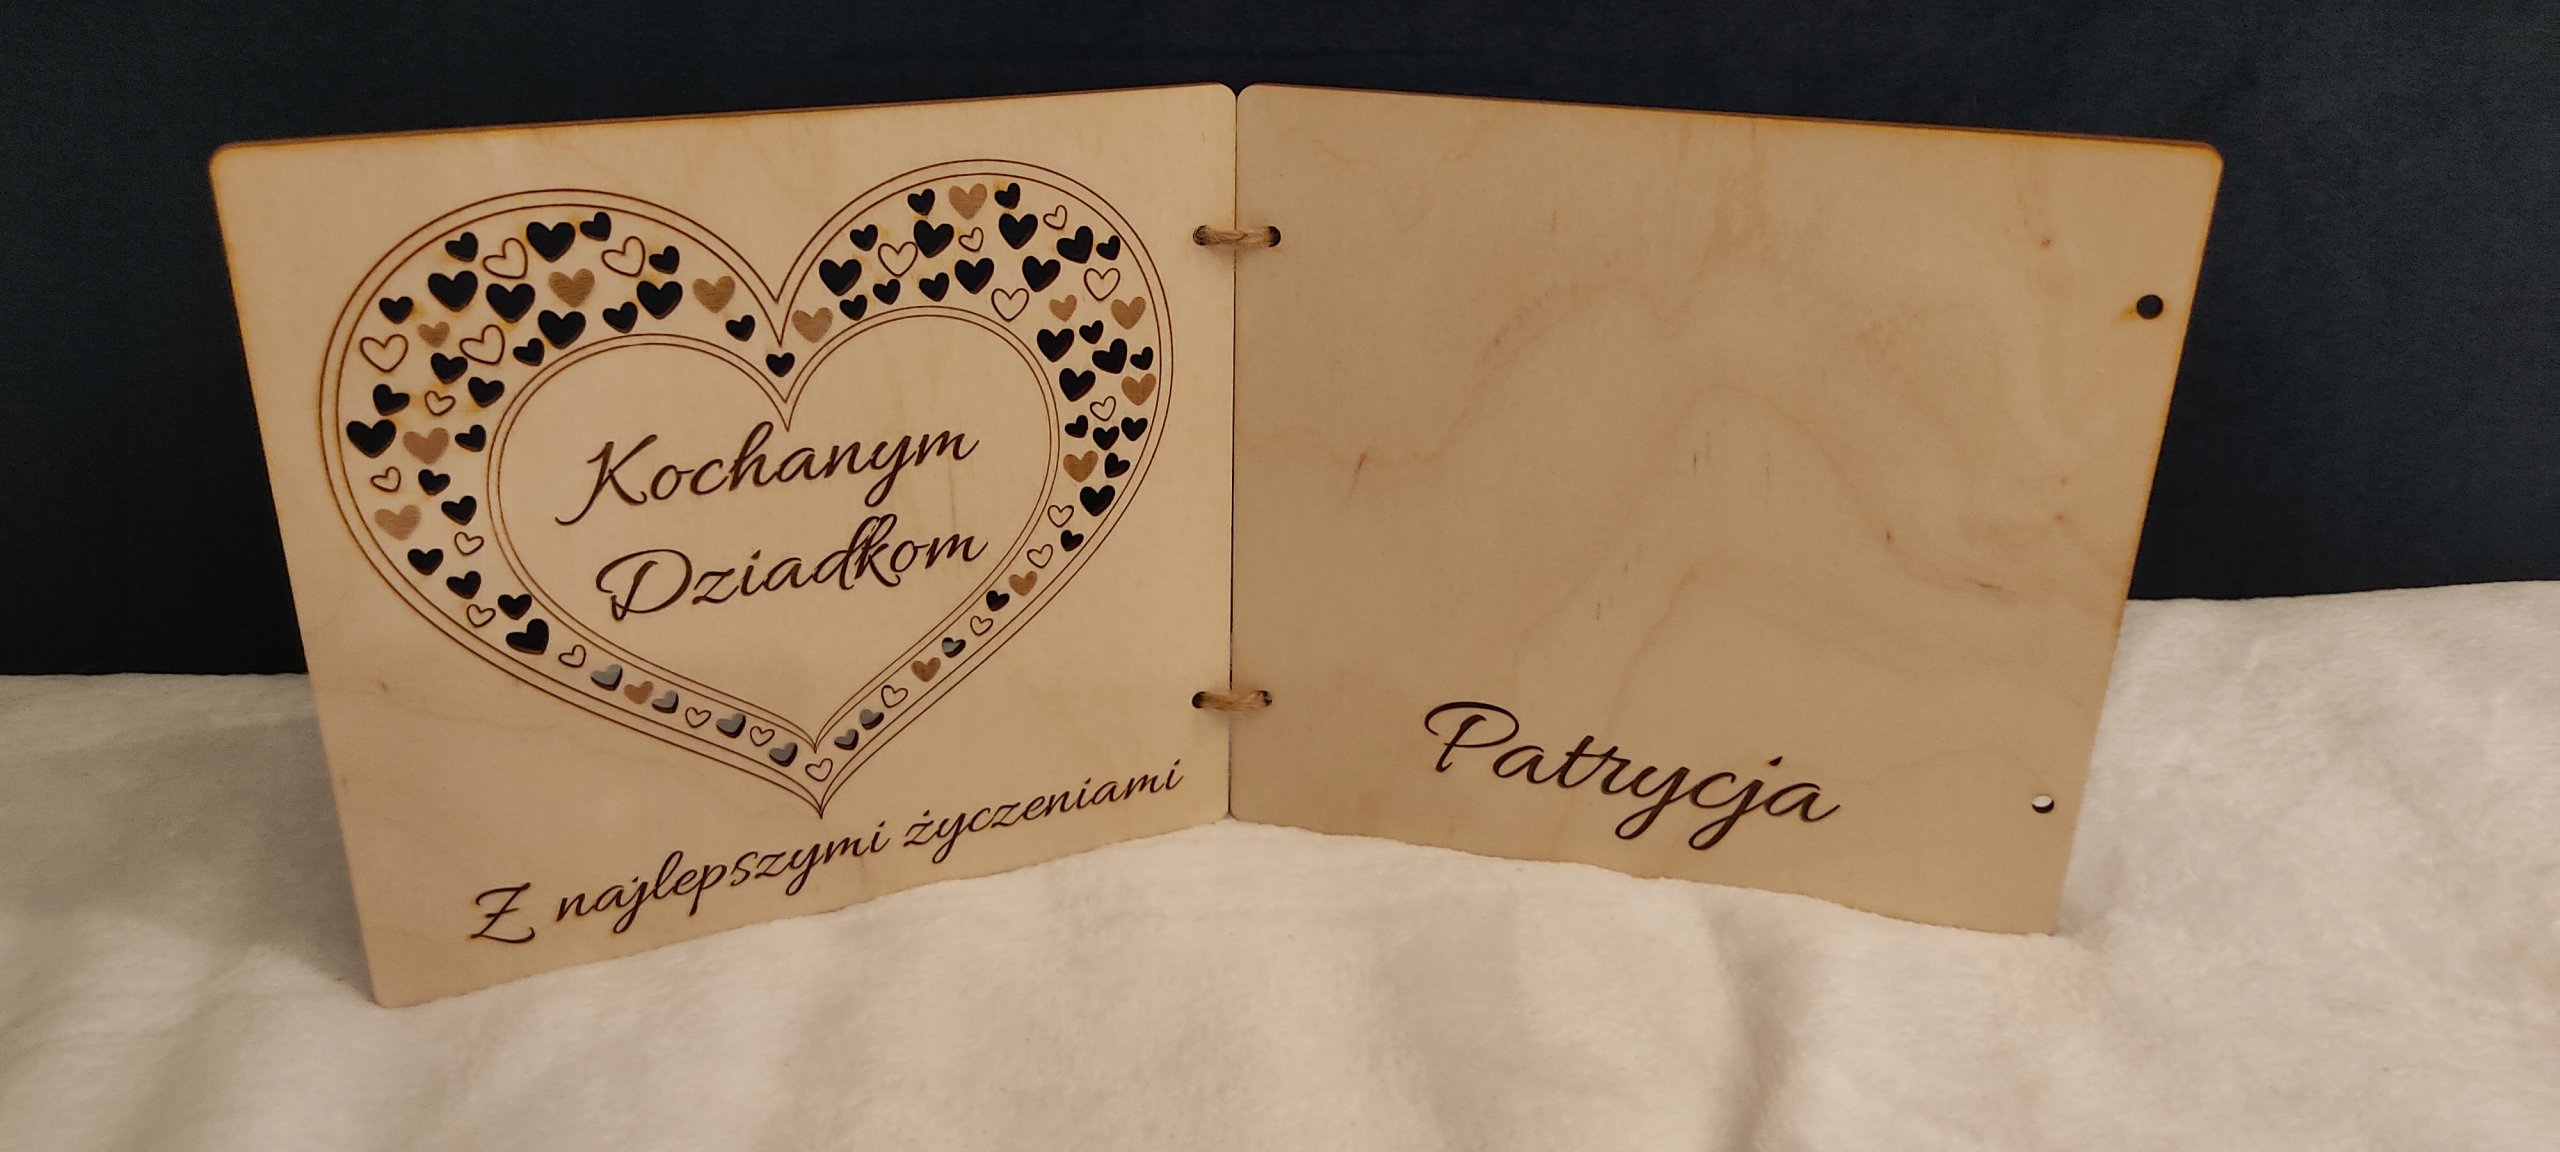 Kochanym
Dziadkom
Z najlepszymi życzeniami
Patrycja